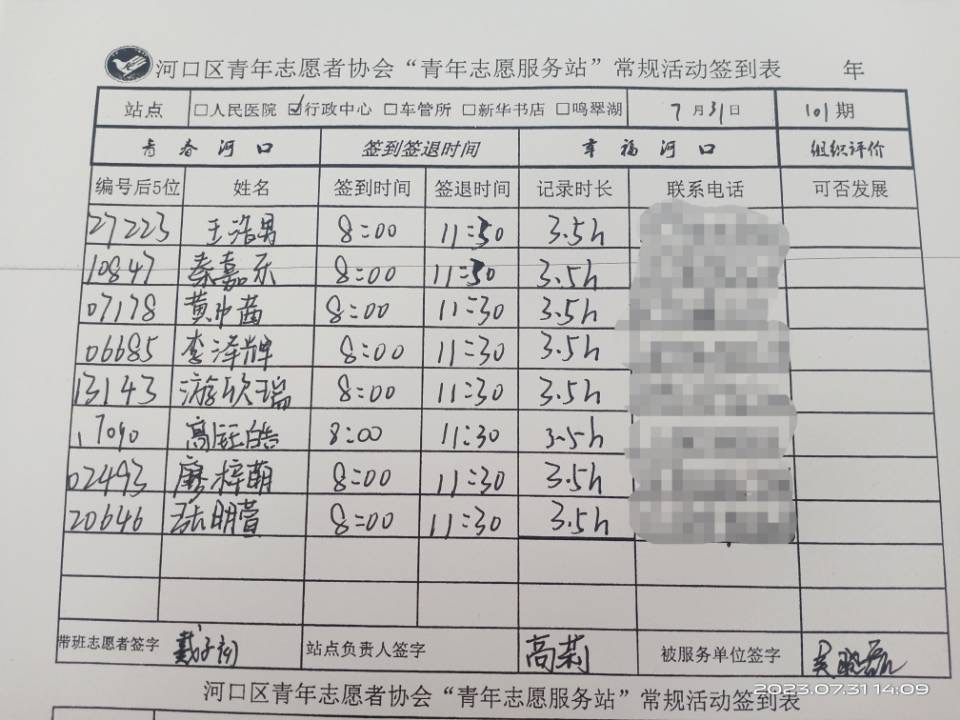 河口区青年志愿者协会“青年志愿服务站”常规活动签到表 年
站点 □人民医院 ☑行政中心 □车管所 □新华书店 □鸣翠湖 7月31日 101期
青春河口 签到签退时间 幸福河口 组织评价
编号后5位 姓名 签到时间 签退时间 记录时长 联系电话 可否发展
27223 王浩男 8:00 11:30 3.5h
10847 秦嘉乐 8:00 11:30 3.5h
07178 黄中茜 8:00 11:30 3.5h
06685 李泽辉 8:00 11:30 3.5h
13143 游欣瑞 8:00 11:30 3.5h
17090 高钰皓 8:00 11:30 3.5h
02493 廖梓萌 8:00 11:30 3.5h
20646 张明萱 8:00 11:30 3.5h
带班志愿者签字 站点负责人签字 高莉 被服务单位签字
2023.07.31 14:09
河口区青年志愿者协会“青年志愿服务站”常规活动签到表